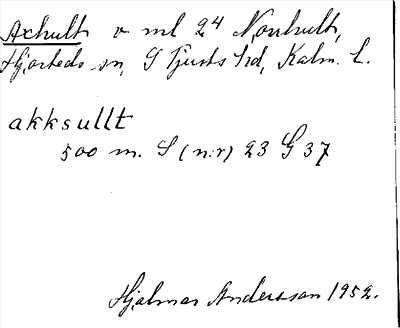 Axhult v ml 24 Norrhult,
Hjorteds sn, S Tjusts hd, Kalm. l.
akksullt
500 m. S (n:r) 23 G 37
Hjalmar Andersson 1952.